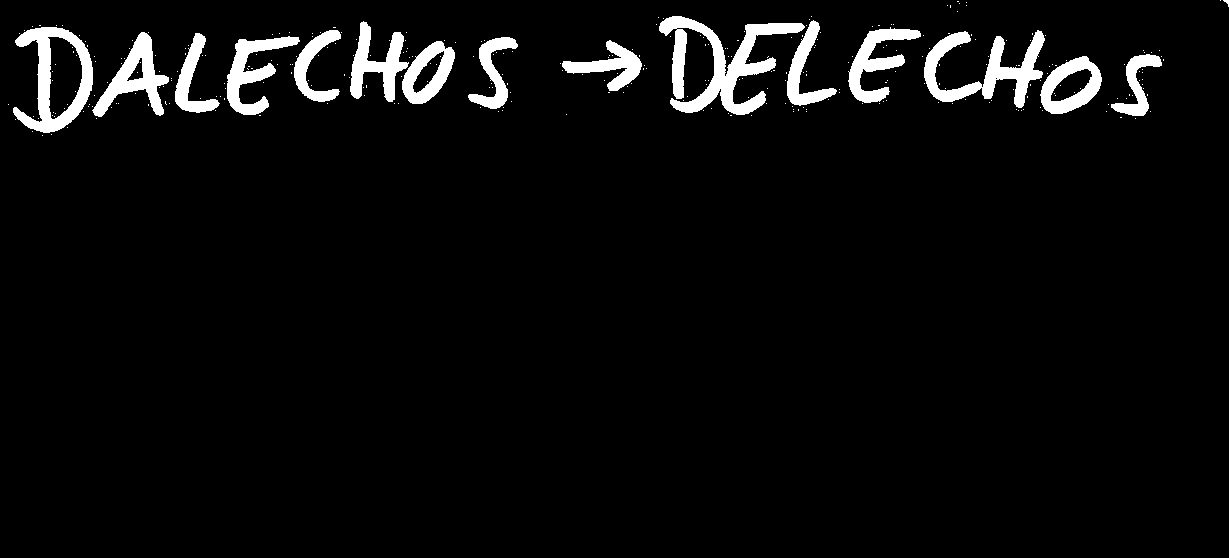 DALECHOS → DELECHOS